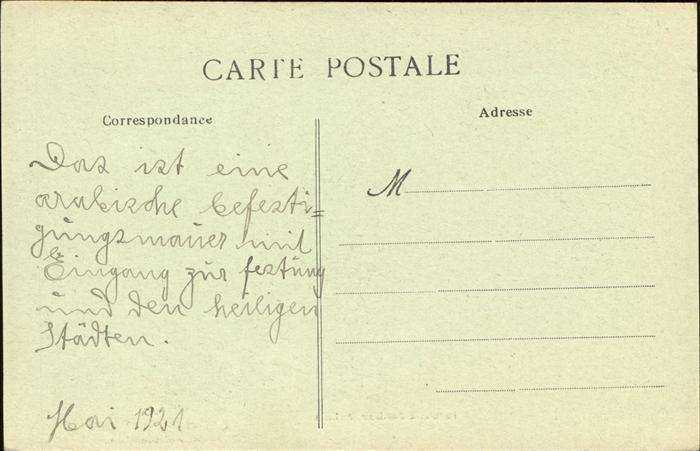 CARTE POSTALE
Correspondance
Adresse
Das ist eine
arabische Befesti=
gungsmauer mit
Eingang zur festung
und den heiligen
Städten.
Mai 1921
M